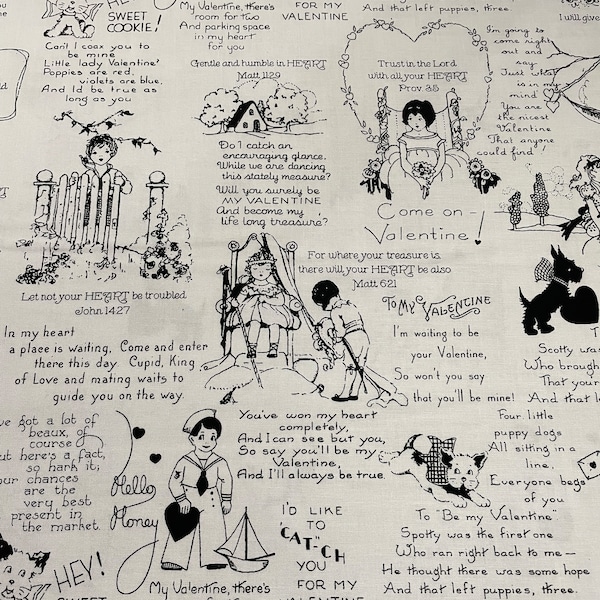 HEY!
SWEET
COOKIE!
Can't I coax you to
be mine
Little lady Valentine?
Poppies are red,
violets are blue,
And I'd be true as
long as you
My Valentine, there's
room for two
And parking space
in my heart
for you
FOR MY
VALENTINE
And that left puppies, three.
I will give
Gentle and humble in HEART
Matt 11:29
Do I catch an
encouraging glance,
While we are dancing
this stately measure?
Will you surely be
MY VALENTINE
And become my
life long treasure?
Trust in the Lord
with all your HEART
Prov 3:5
Come on -
Valentine!
I'm going to
come right
out and
say
Just what
is in my
mind
You are
the nicest
Valentine
That anyone
could find!
Let not your HEART be troubled
John 14:27
For where your treasure is,
there will your HEART be also
Matt 6:21
In my heart
a place is waiting, Come and enter
there this day. Cupid, King
of Love and mating waits to
guide you on the way.
To My VALENTINE
I'm waiting to be
your Valentine,
So won't you say
that you'll be mine!
Scotty
Who brough
That your
And that l
've got a lot of
beaux, of
course
ut here's a fact,
so hark it;
our chances
are the
very best
present in
the market.
Hello
Honey
You've won my heart
completely,
And I can see but you,
So say you'll be my
Valentine,
And I'll always be true.
I'D LIKE
TO
"CAT"-CH
YOU
FOR MY
VALENTINE
Four little
puppy dogs
All sitting in a
line,
Everyone begs
of you
To "Be my Valentine"
Spotty was the first one
Who ran right back to me —
He thought there was some hope
And that left puppies, three.
HEY!
SWEET
My Valentine, there's